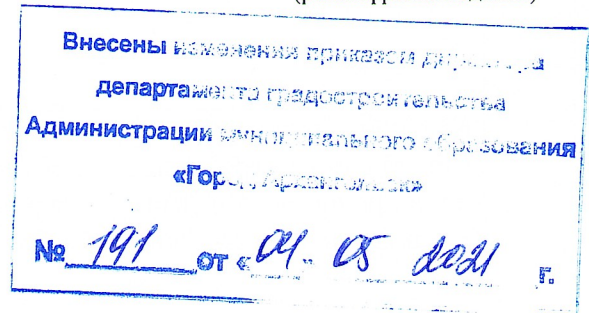 Внесены изменения приказом директора
департамента градостроительства
Администрации муниципального образования
«Город Архангельск»
№ 191 от «04» 05 2021 г.